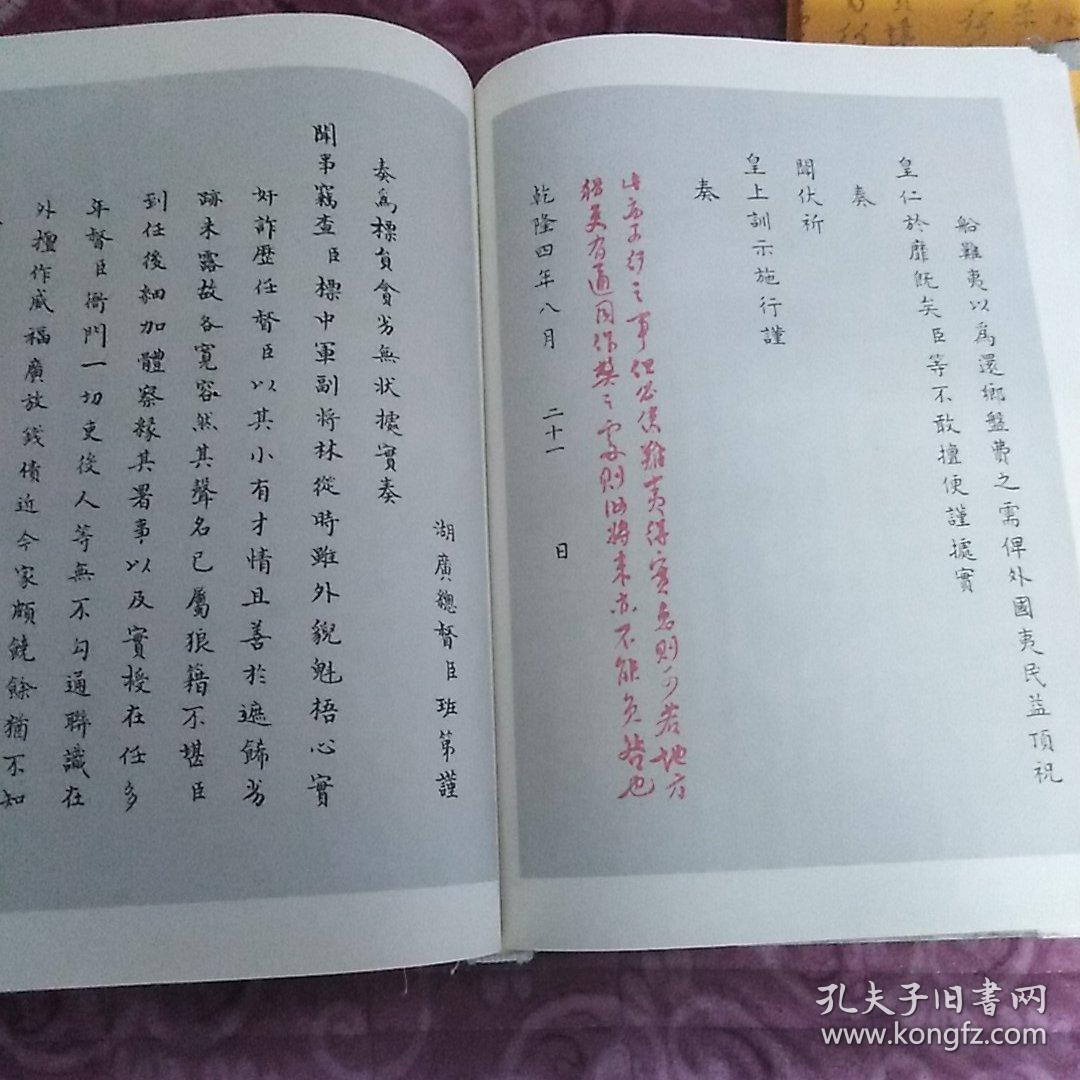 船難夷以為還鄉盤費之需俾外國夷民益頂祝
皇仁於靡既矣臣等不敢擅便謹據實
奏
聞伏祈
皇上訓示施行謹
奏
此亦可行之事但必使難夷得實惠則可若地方
猾吏有通同作弊之處則汝將來亦不能負咎也
乾隆四年八月 二十一 日
湖廣總督臣班第謹
奏爲標員貪劣無狀據實奏
聞事竊查臣標中軍副將林從時雖外貌魁梧心實
奸詐歷任督臣以其小有才情且善於遮飾劣
跡未露故各寬容然其聲名已屬狼籍不堪臣
到任後細加體察緣其署事以及實授在任多
年督臣衙門一切吏役人等無不勾通聯識在
外擅作威福廣放錢債近今家頗饒餘猶不知
孔夫子旧书网
www.kongfz.com